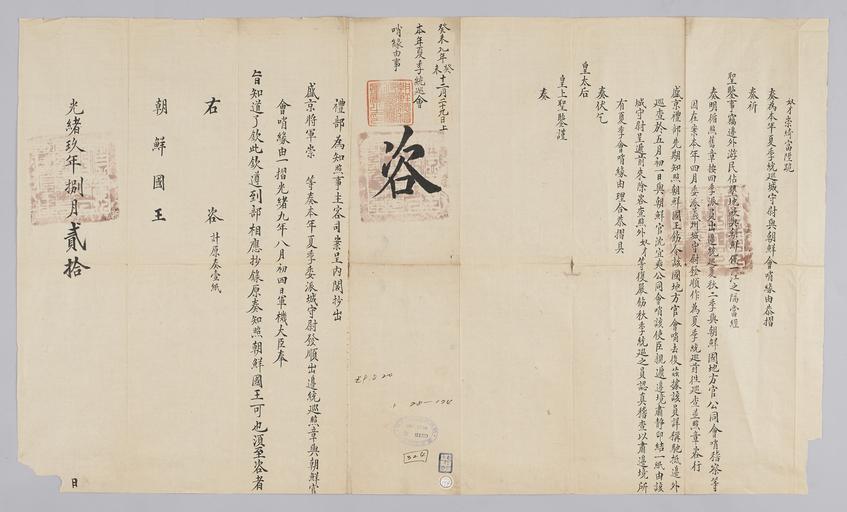 奴才崇綺富陞跪
奏為本年夏季統巡城守尉與朝鮮會哨緣由恭摺
奏祈
聖鑒事竊邊外游民佔墾地畝與朝鮮僅一江之隔當經
奏明循照舊章按四季派員出邊統巡夏秋二季與朝鮮國地方官公同會哨稽察等
因在案本年四月委派義州城守尉發順作為夏季統巡前往巡查並照章咨行
盛京禮部先期知照朝鮮國王飭令該國地方官會哨去後茲據該員詳稱馳抵邊外
巡查於五月初一日與朝鮮官沈宜奭公同會哨該使臣親遞邊境肅靜印結一紙由該
城守尉呈遞前來除咨查照外奴才等復嚴飭秋季統巡之員認真稽查以肅邊境所
有夏季會哨緣由理合恭摺具
奏伏乞
皇太后
皇上聖鑒謹
奏
癸未九年癸未十二月二十九日上
本年夏季統巡會
哨緣由事
咨
禮部為知照事主客司案呈內閣抄出
盛京將軍崇 等奏本年夏季委派城守尉發順出邊統巡照章與朝鮮官
會哨緣由一摺光緒九年八月初四日軍機大臣奉
旨知道了欽此欽遵到部相應抄錄原奏知照朝鮮國王可也須至咨者
右 咨 計原奏壹紙
朝鮮國王
光緒玖年捌月貳拾 日
324